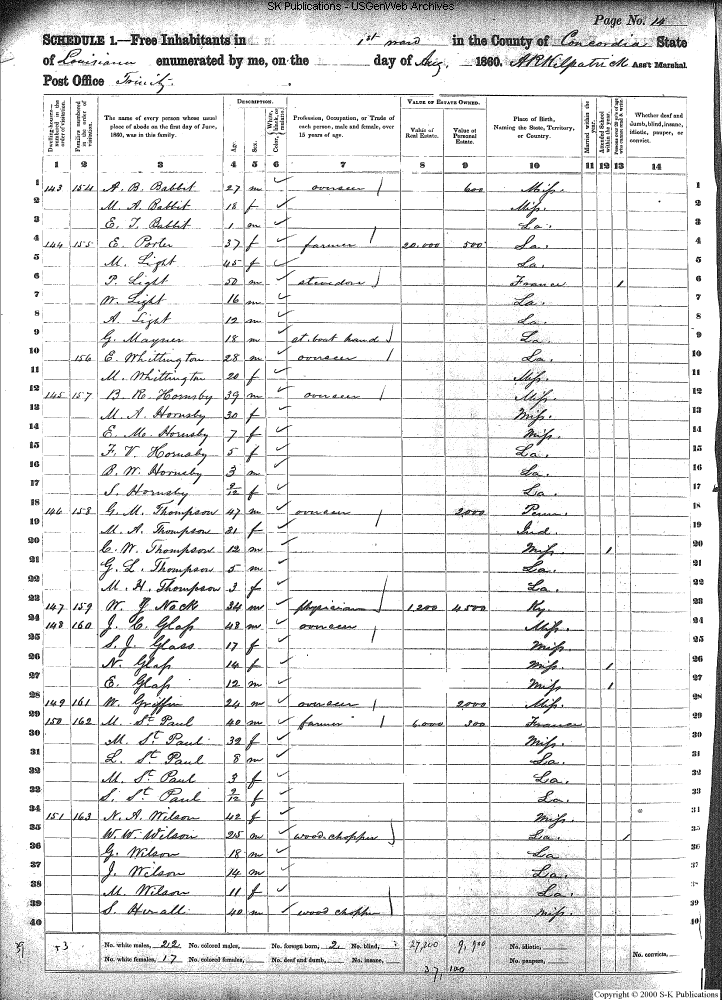 SK Publications - USGenWeb Archives
Page No. 14
SCHEDULE 1.—Free Inhabitants in 1st ward in the County of Concordia State
of Louisiana enumerated by me, on the day of Aug. 1860. A R Kilpatrick Ass't Marshal.
Post Office Trinity.
DESCRIPTION. VALUE OF ESTATE OWNED.
The name of every person whose usual place of abode on the first day of June, 1860, was in this family.
Age. Sex.
Profession, Occupation, or Trade of each person, male and female, over 15 years of age.
Value of Real Estate. Value of Personal Estate.
Place of Birth, Naming the State, Territory, or Country.
Married within the year. Attended School within the year.
Whether deaf and dumb, blind, insane, idiotic, pauper, or convict.
1 2 3 4 5 6 7 8 9 10 11 12 13 14
1 143 154 A. B. Babbit 27 m ✓ overseer 600 Miss. 1
2 M. A. Babbit 18 f ✓ Miss. 2
3 E. T. Babbit 1 m ✓ La. 3
4 144 155 E. Porter 37 f ✓ farmer 20,000 500 La. 4
5 M. Light 45 f ✓ La. 5
6 P. Light 50 m ✓ stevedore France 1 6
7 W. Light 16 m ✓ La. 7
8 A. Light 12 m ✓ La. 8
9 G. Mayner 18 m ✓ st. boat hand La. 9
10 156 E. Whittington 28 m ✓ overseer La. 10
11 M. Whittington 20 f ✓ Miss. 11
12 145 157 B. R. Hornsby 39 m ✓ overseer Miss. 12
13 M. A. Hornsby 30 f ✓ Miss. 13
14 E. M. Hornsby 7 f ✓ Miss. 14
15 F. V. Hornsby 5 f ✓ La. 15
16 R. W. Hornsby 3 m ✓ La. 16
17 S. Hornsby 9/12 f ✓ La. 17
18 146 158 G. M. Thompson 47 m ✓ overseer 2,000 Penn. 18
19 M. A. Thompson 31 f ✓ Ind. 19
20 C. W. Thompson 12 m ✓ Miss. 1 20
21 G. L. Thompson 5 m ✓ La. 21
22 M. H. Thompson 3 f ✓ La. 22
23 147 159 W. J. Nack 34 m ✓ physician 1,200 4,500 Ky. 23
24 148 160 J. C. Glass 48 m ✓ overseer Miss. 24
25 S. J. Glass 17 f ✓ Miss 25
26 N. Glass 14 f ✓ Miss. 1 26
27 E. Glass 12 m ✓ Miss 1 27
28 149 161 W. Griffin 24 m ✓ overseer 2000 Miss. 28
29 150 162 M. St Paul 40 m ✓ farmer 6,000 300 France 29
30 M. St Paul 32 f ✓ Miss. 30
31 L. St Paul 8 m ✓ La. 31
32 M. St Paul 3 f ✓ La. 32
33 S. St Paul 9/12 f ✓ La. 33
34 151 163 N. A. Wilson 42 f ✓ Miss. 34
35 W. W. Wilson 25 m ✓ wood chopper La. 1 35
36 G. Wilson 18 m ✓ La 36
37 J. Wilson 14 m ✓ La. 37
38 M. Wilson 11 f ✓ La. 38
39 S. 40 m ✓ wood chopper Miss. 39
40 40
No. white males, 22 No. colored males, No. foreign born, 2 No. blind, 27,200 9,900 No. idiotic,
No. white females, 17 No. colored females, No. deaf and dumb, No. insane, No. paupers, No. convicts,
37,100
Copyright © 2000 S-K Publications